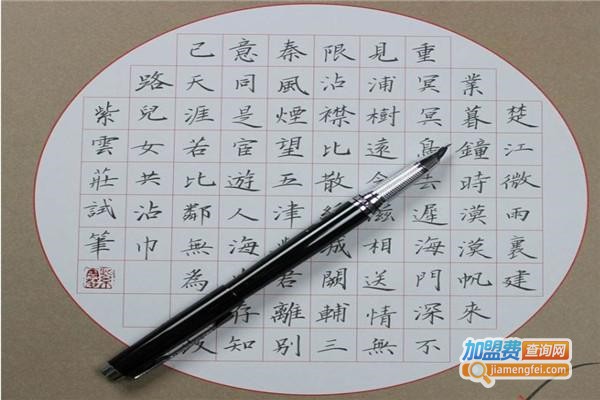 楚江微雨裏建
業暮鐘時漠漠帆來
重冥冥鳥去遲海門深不
見浦樹遠含滋相送情無
限沾襟比散城闕輔三
秦風煙望五津君離別
意同是宦遊人海存知
己天涯若比鄰無為
路兒女共沾巾
紫雲莊試筆
加盟费查询网
jiamengfei.com